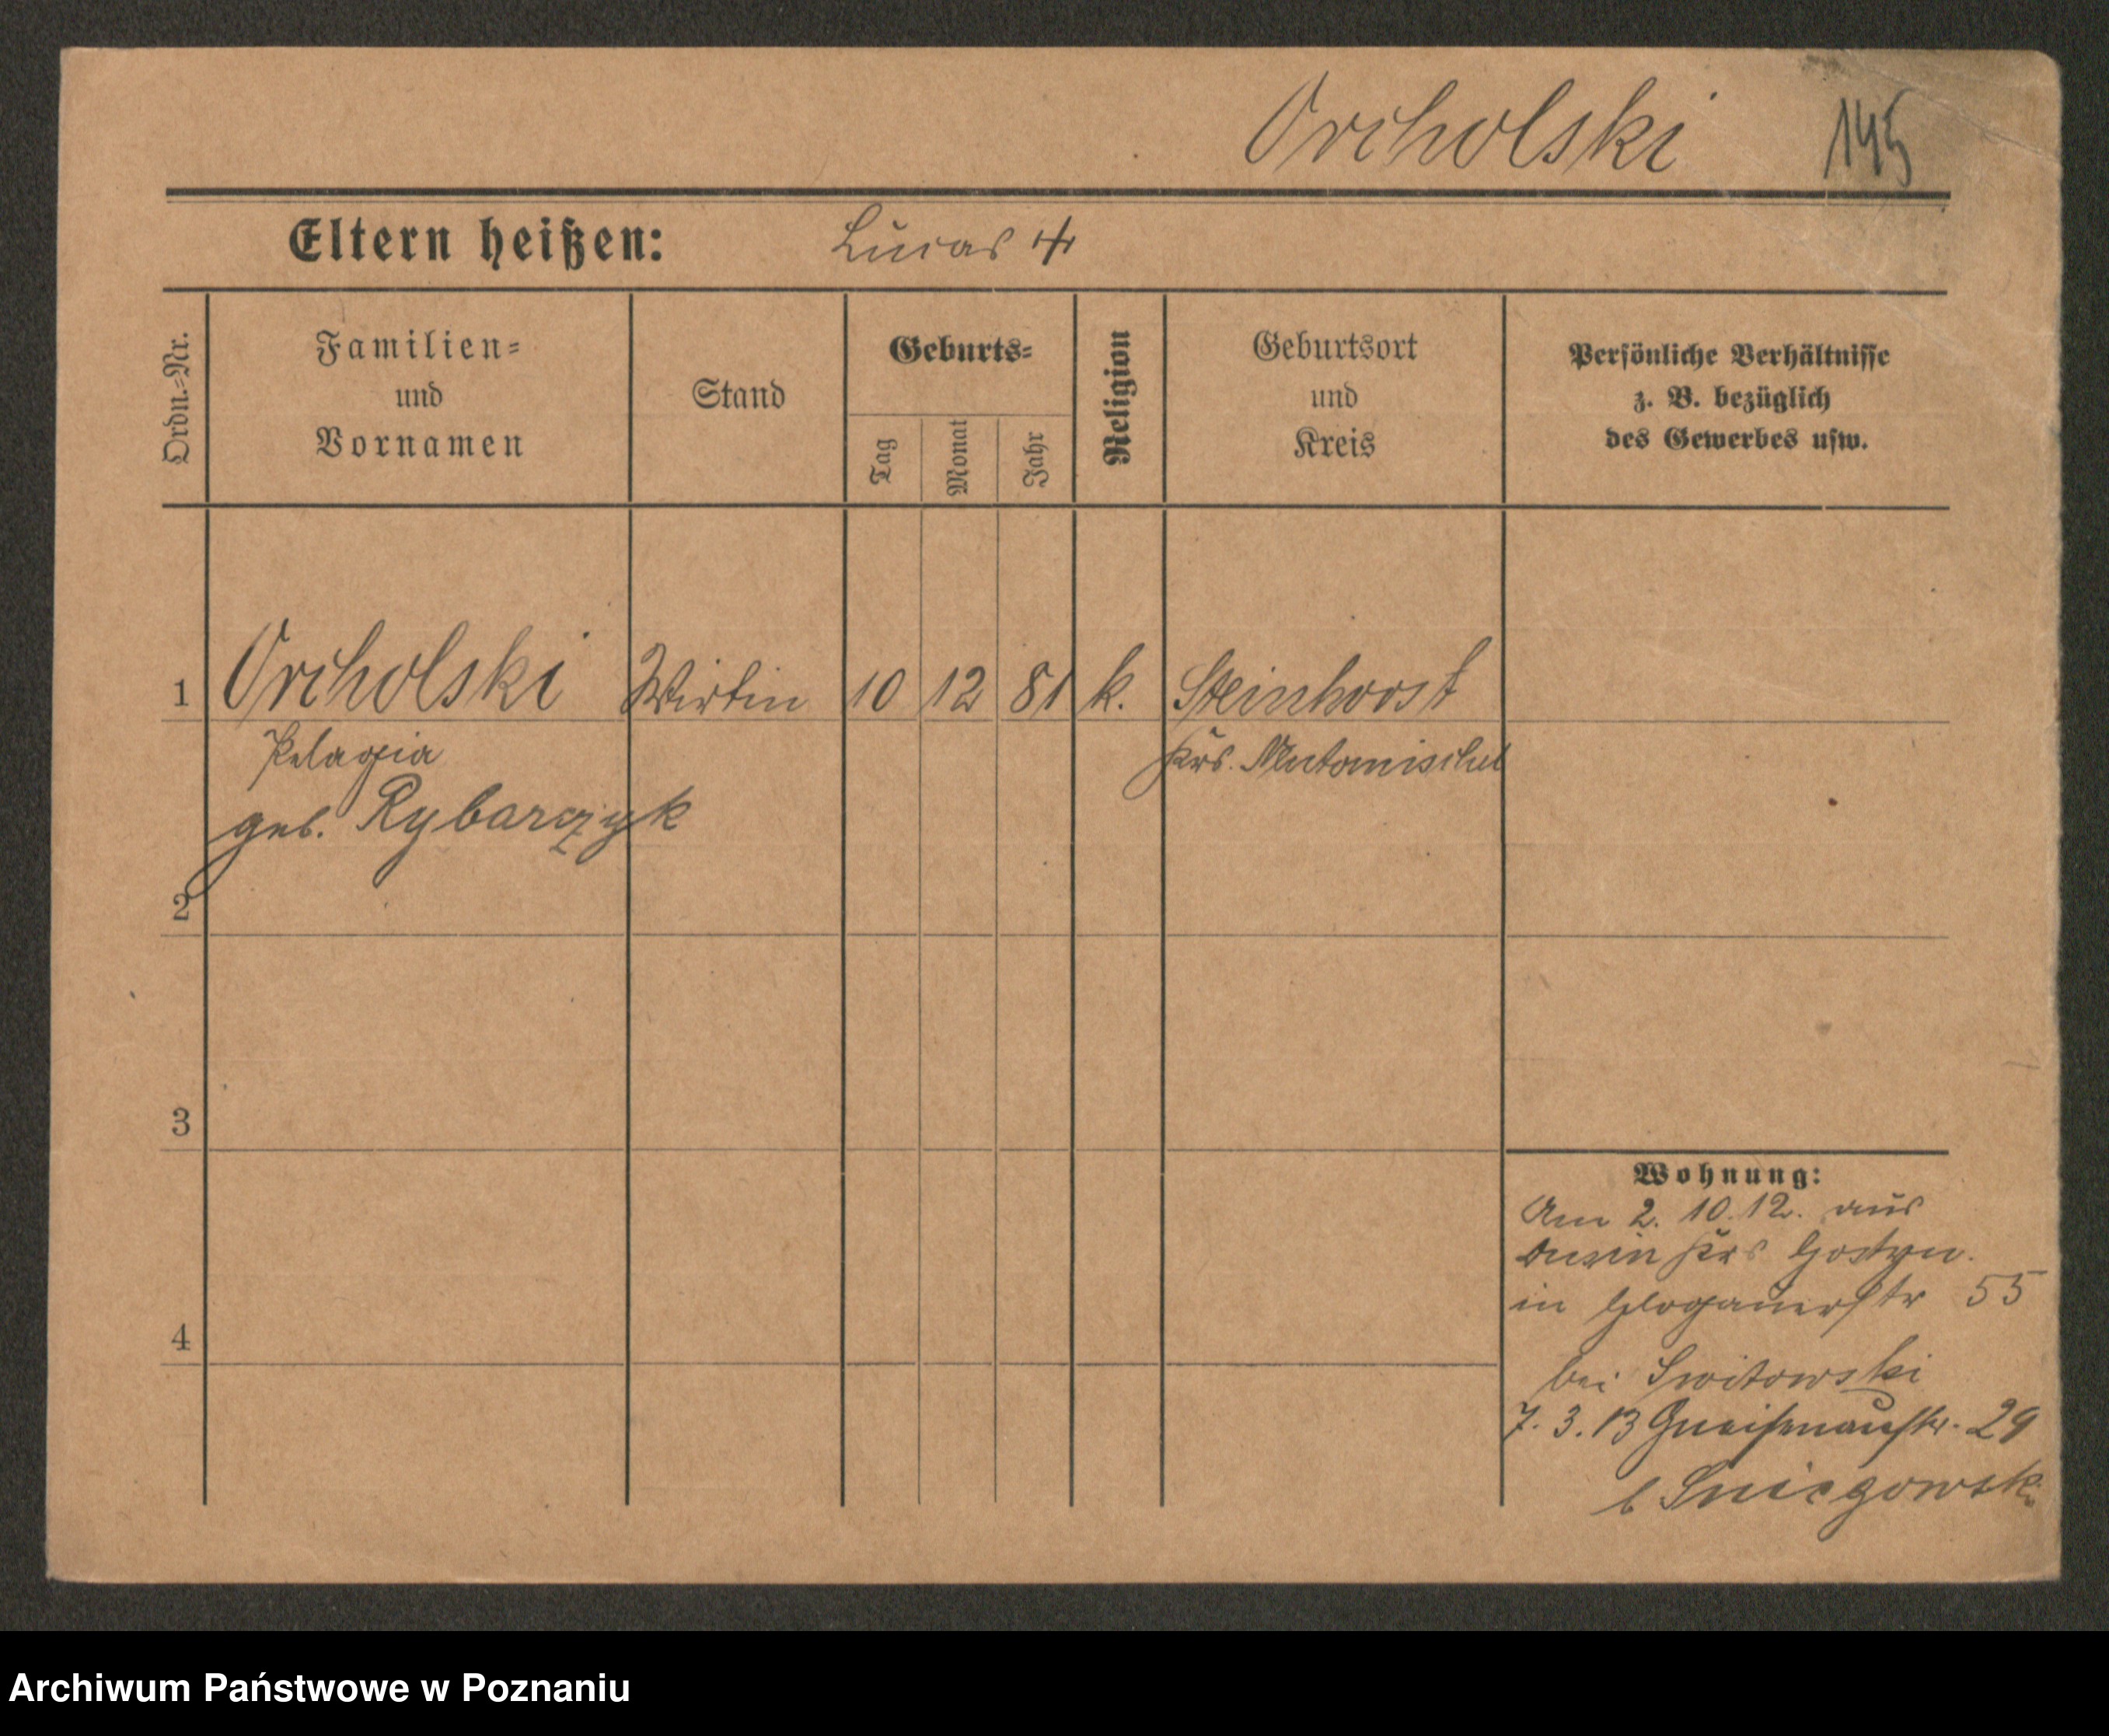 Orcholski 145
Eltern heißen: Lucas
Ordn.-Nr.
Familien-
und
Vornamen
Stand
Geburts-
Tag
Monat
Jahr
Religion
Geburtsort
und
Kreis
Persönliche Verhältnisse
z. B. bezüglich
des Gewerbes usw.
1 Orcholski Wirtin 10 12 81 k. Steinhorst
Pelagia Krs. Neutomischel
geb. Rybarczyk
2
3
4
Wohnung:
Am 2. 10. 12. aus
Krs Gostyn.
in Glogauerstr 55
bei Switowski
7. 3. 13 Gneisenaustr. 29
b Sniegowski
Archiwum Państwowe w Poznaniu